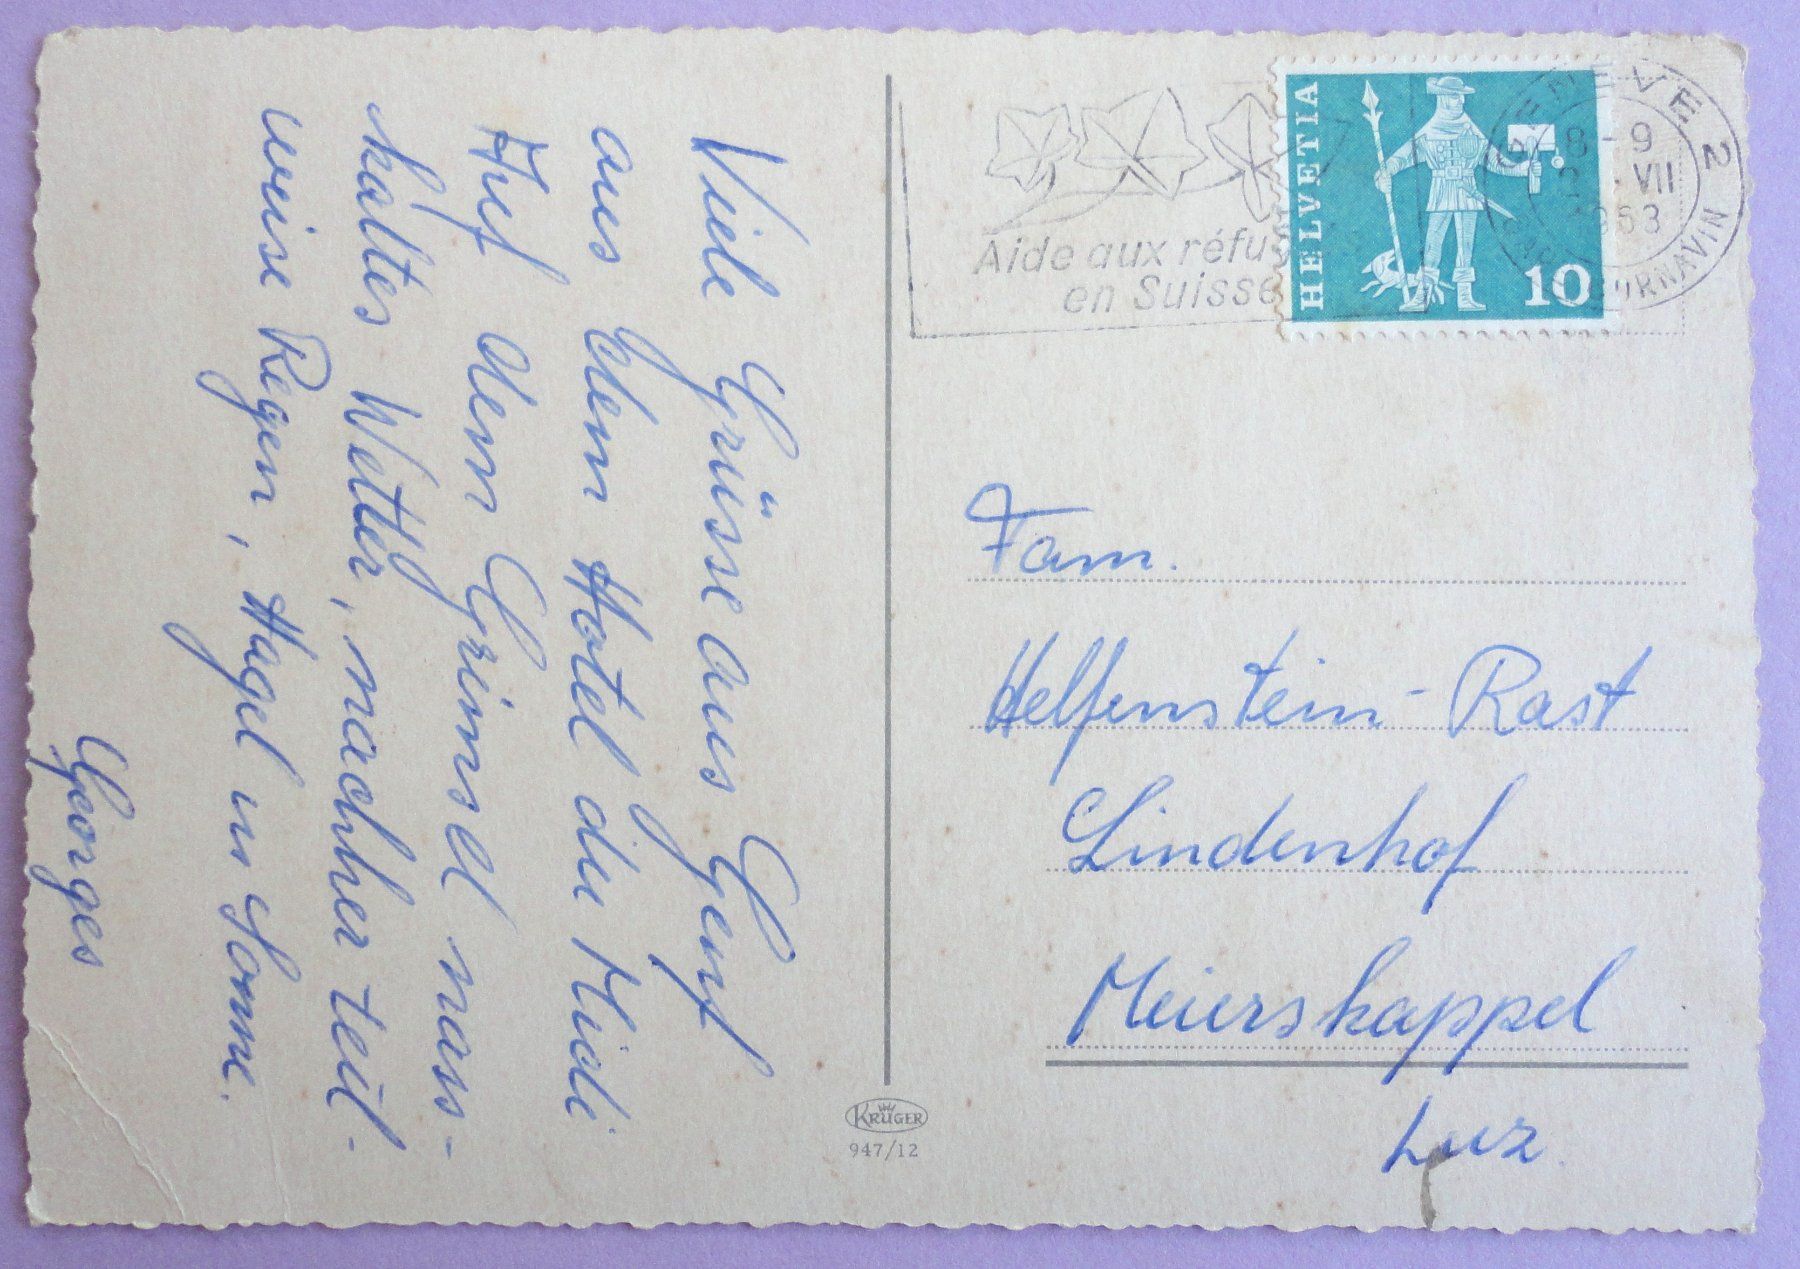 Viele Grüsse aus Genf
aus dem Hotel du Midi
Auf dem Grimsel nass-
kaltes Wetter, nachher teil-
weise Regen, Hagel us Sonne.
Georges
Aide aux réfu
en Suisse
HELVETIA
10
GENEVE 2
8-9
VII
1963
CORNAVIN
Fam.
Helfenstein-Rast
Lindenhof
Meierskappel
Luz.
KRÜGER
947/12